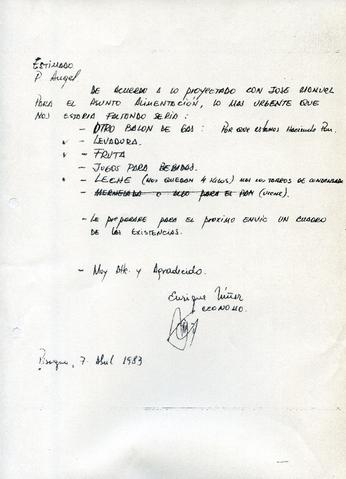 Estimado
P. Angel
DE ACUERDO A LO PROYECTADO CON JOSE MANUEL
PARA EL ASUNTO ALIMENTACIÓN, LO MAS URGENTE QUE
NOS ESTARIA FALTANDO SERIA:
- OTRO BALON DE GAS: POR QUE ESTAMOS HACIENDO PAN.
- LEVADURA.
- FRUTA
- JUGOS PARA BEBIDAS.
- LECHE (NOS QUEDAN 4 KILOS) MAS LOS TARROS DE CONDENSADA
- MERMELADA O ALGO PARA EL PAN (VIENE).
- LE PREPARARE PARA EL PROXIMO ENVIO UN CUADRO
DE LAS EXISTENCIAS.
- Muy Atte. y Agradecido.
Enrique Núñez
ECONOMO.
Pisagua, 7 Abril 1983